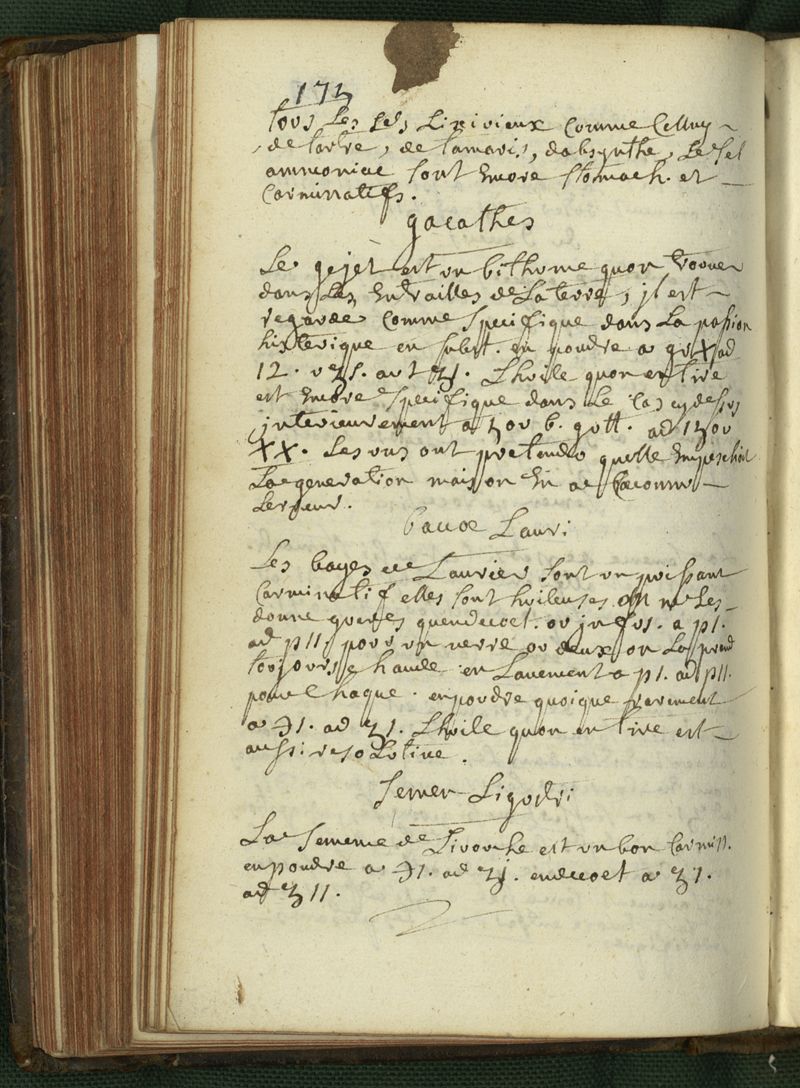 172
tous Les sels Lixivieux Comme Celluy
de tartre, de tamaris, dabsynthe, Le sel
ammoniac sont Encore stomach. et
Carminatifs.
gacathes
Le gejet est un bithume quon trouve
dans Les Entrailles de La terre, jl est
regarde Comme specifique dans La passion
histerique en subst. en poudre a gr X ad
12. Lhuile quon en tire
est Encore specifique dans Le Cas cy dessus
interieurement a 5 ou 6. gutt. ad 15 ou
XX. Les uns ont pretendu quelle Empeschoit
La generation mais on En a
Lerreur.
baccae Lauri
Les bayes de Laurier sont un puissant
Carminatif elles sont huileuses on ne Les
donne gueres quendecoct. ou jnfus. a p1.
ad p11. pour un verre ou deux on La prend
toujours chaude en Lavement a p1. ad p11.
pour Chaque. en poudre quoique rarement
a ℈1. ad ʒ1. Lhuile quon en tire est
aussi resolutive.
semen Ligustri
La semence de Livoeche est un bon Carmin.
en poudre a ℈1. ad ʒj. endecoct a ʒ1.
ad ʒ11.